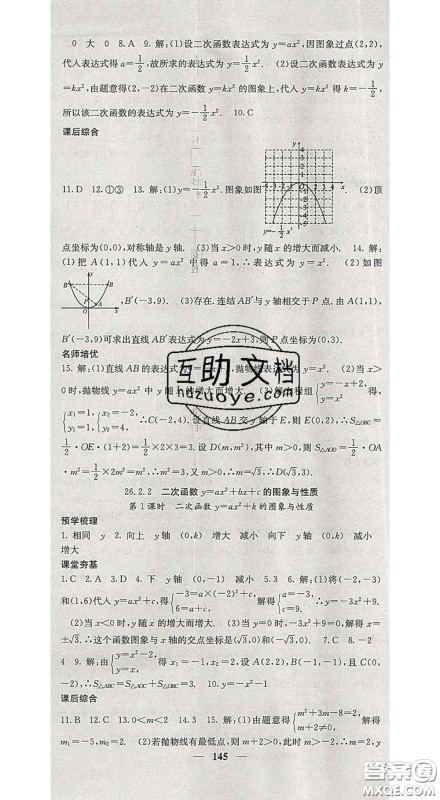 0 大 0 8.A 9.解:(1)设二次函数表达式为y=ax²,因图象过点(2,2),
代入表达式得a=1/2,故所求的表达式为y=1/2x². (2)设二次函数表达式为y
=kx²,由题意得(2,-2)在二次函数y=kx²的图象上,代入y=kx²得k=-1/2,
所以该二次函数的表达式为y=-1/2x². 10.C
课后综合
11.D 12.①③ 13.解:(1)y=-1/2x².图象如图 (2)顶
点坐标为(0,0),对称轴是y轴. (3)当x>0时,y随x的增大而减小. 14.解:
(1)把A(1,1)代入y=ax²中得a=1,∴表达式为y=x². (2)如图
,B′(-3,9). (3)存在.连结AB′与y轴相交于P点.由A(1,1),
B′(-3,9)可求出直线AB′的表达式为y=-2x+3,则P点坐标为(0,3).
名师培优
15.解:(1)直线AB的表达式为 抛物线表达式为 (2)当x>
0时,抛物线y=ax²中y随x的增大而增大. 程组{y=-x+2, y=x², 得
{x₁=1, y₁=1, {x₂=-2, y₂=4, ∴C(-2,4).设直线AB交y轴于E,则E(0,2),∴S△OBC=
1/2·OE·(1+2)=1/2×2×3=3.设D(m,m²),其中m>0,则S△AOD=1/2·OA
·m²=1/2×2×m²=3.又m>0,∴m=√3,∴D(√3,3).
26.2.2 二次函数y=ax²+bx+c的图象与性质
第1课时 二次函数y=ax²+k的图象与性质
预学梳理
1.相同 y 2.向上 y轴 (0,k) 增大 减小 向下 y轴 (0,k) 减小
增大
课堂夯基
1.C 2.A 3.D 4.下 y轴 (0,-1) 减小 5.3 6.解:(1)将(-2,-3)
和(1,6)代入y=ax²+c,得{-3=a×(-2)²+c, 6=a+c, 解得{a=-3, c=9,
(2)当x<0时,y随x的增大而增大. (3)令y=0,则-3x²+9=0,解得x=
±√3.∴这个函数图象与x轴的交点坐标是(√3,0)和(-√3,0). 7.C 8.-2
4 9.解:由{y=x²-2, y=-x, 得x₁=-2,x₂=1,∴A(-2,2),B(1,-1),且C(0,
-2),∴S△ABC=S△AOC+S△BOC=3. 10.y=-x²-1
课后综合
11.B 12.C 13.0<m<2 14.3 15.解:(1)由题意得{m²+3m-8=2, m+2≠0, 解得
m₁=-5,m₂=2. (2)若抛物线有最低点,则m+2>0,此时m>-2,∴m=2,y
145
互助文档
hdzuoye.com
答案圈
MXQE.COM